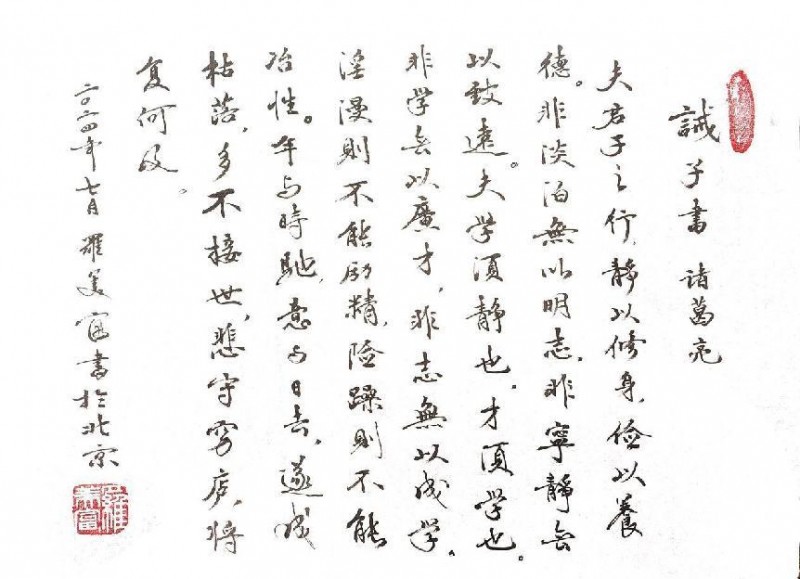 誡子書 诸葛亮
夫君子之行,靜以修身,俭以養
德。非淡泊無以明志,非寧靜無
以致遠。夫学須靜也,才須学也。
非学無以廣才,非志無以成学。
淫漫則不能励精,险躁則不能
冶性。年与時馳,意与日去,遂成
枯落,多不接世,悲守穷庐,将
复何及。
二〇一四年七月 羅美富書於北京
羅美富